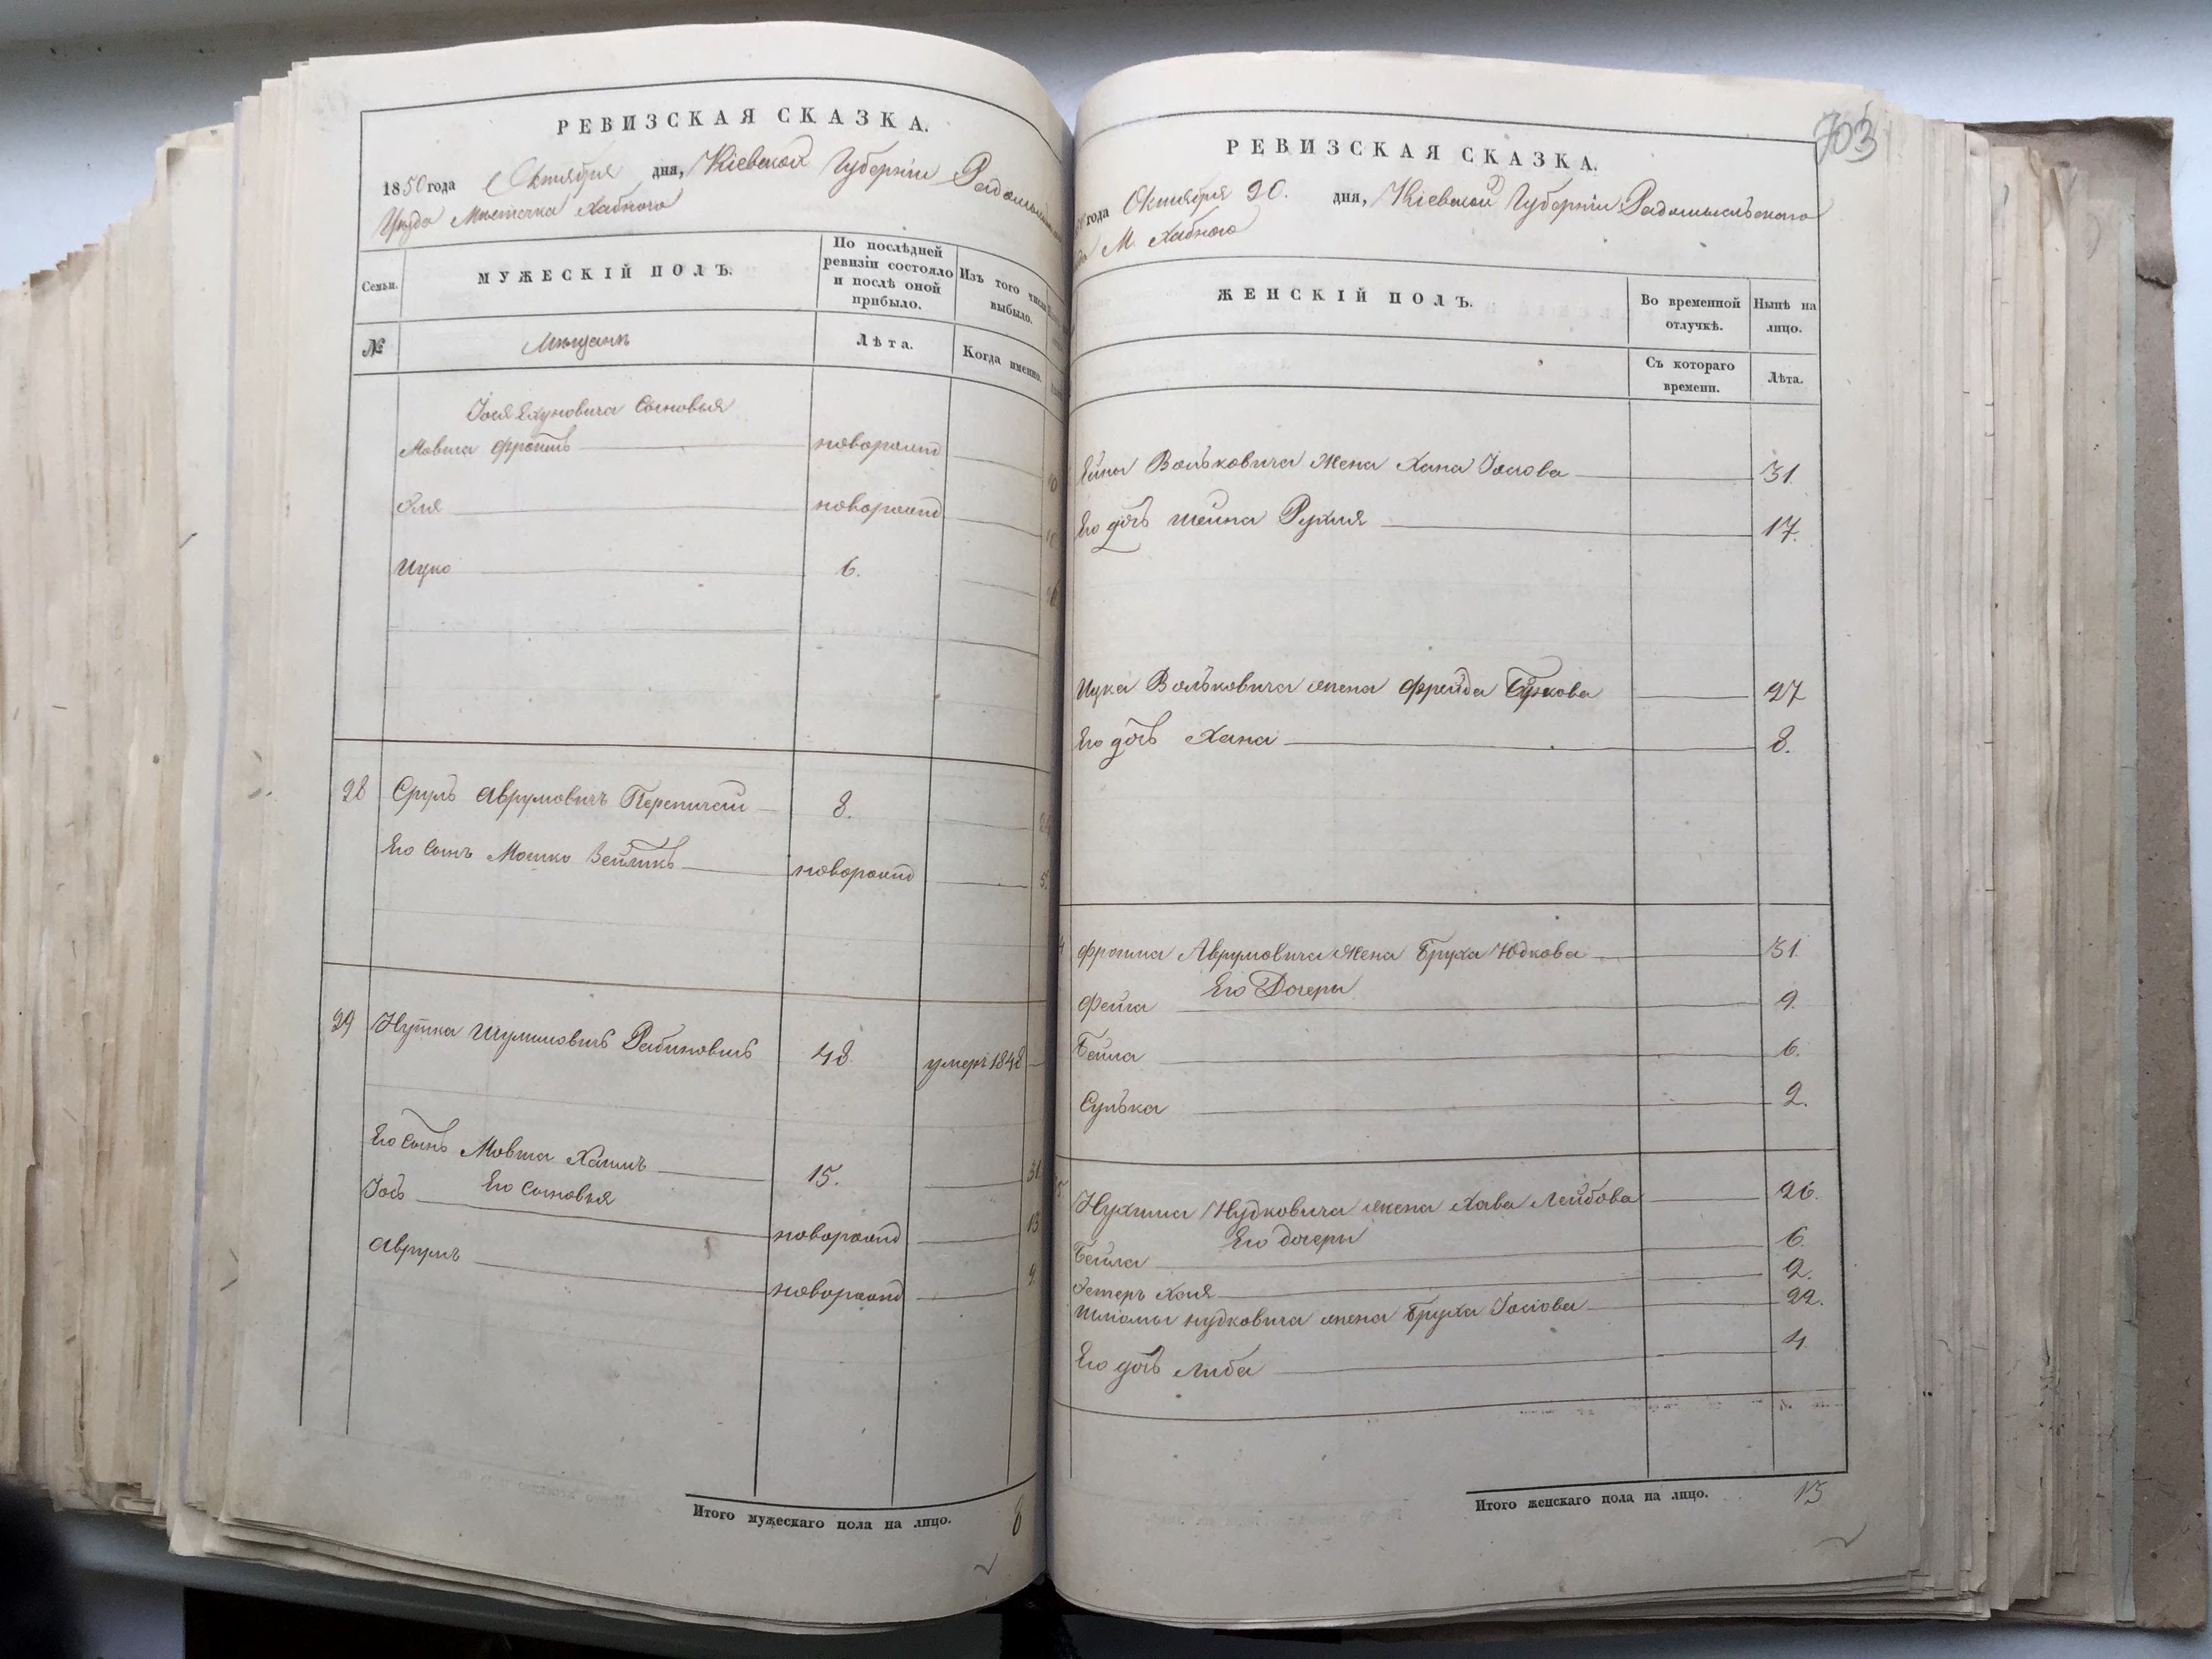 РЕВИЗСКАЯ СКАЗКА.
1850 года Октября дня, Кіевской Губерніи
Уѣзда Мѣстечка Хабного
Семьи.
МУЖЕСКІЙ ПОЛЪ.
По послѣдней ревизіи состояло и послѣ оной прибыло.
Изъ того числа выбыло.
№
Мѣщанъ
Лѣта.
Когда именно.
Сыновья
Мовша Фроимъ новорожд
новорожд
Ицко 6.
28 Сруль Аврумовичъ 8.
Его Сынъ Мошко новорожд 5.
29 Рабиновичъ 48 умеръ 1848
Его Сынъ Мовша Хаимъ 15. 31
Его Сыновья
Іось новорожд 13
Аврумъ новорожд 9.
Итого мужескаго пола на лицо. 8
703
РЕВИЗСКАЯ СКАЗКА.
года Октября 20. дня, Кіевской Губерніи Радомысльскаго
М. Хабного
ЖЕНСКІЙ ПОЛЪ.
Во временной отлучкѣ.
Нынѣ на лицо.
Съ котораго времени.
Лѣта.
Вольковича Жена Хана Іосіова 31.
Его дочь Шейна Рухля 17.
Ицка Вольковича жена Фрейда 27
Его дочь Хана 8.
Фроима Аврумовича Жена Бруха Юдкова 31.
Его Дочери
Фейга 9.
Бейла 6.
Сулька 2.
Нухима Нудковича жена Хава Лейбова 26.
Его дочери
Бейла 6.
Хая 2.
Шліомы Нудковича жена Бруха Іосіова 22.
Его дочь Либа 4
Итого женскаго пола на лицо. 13